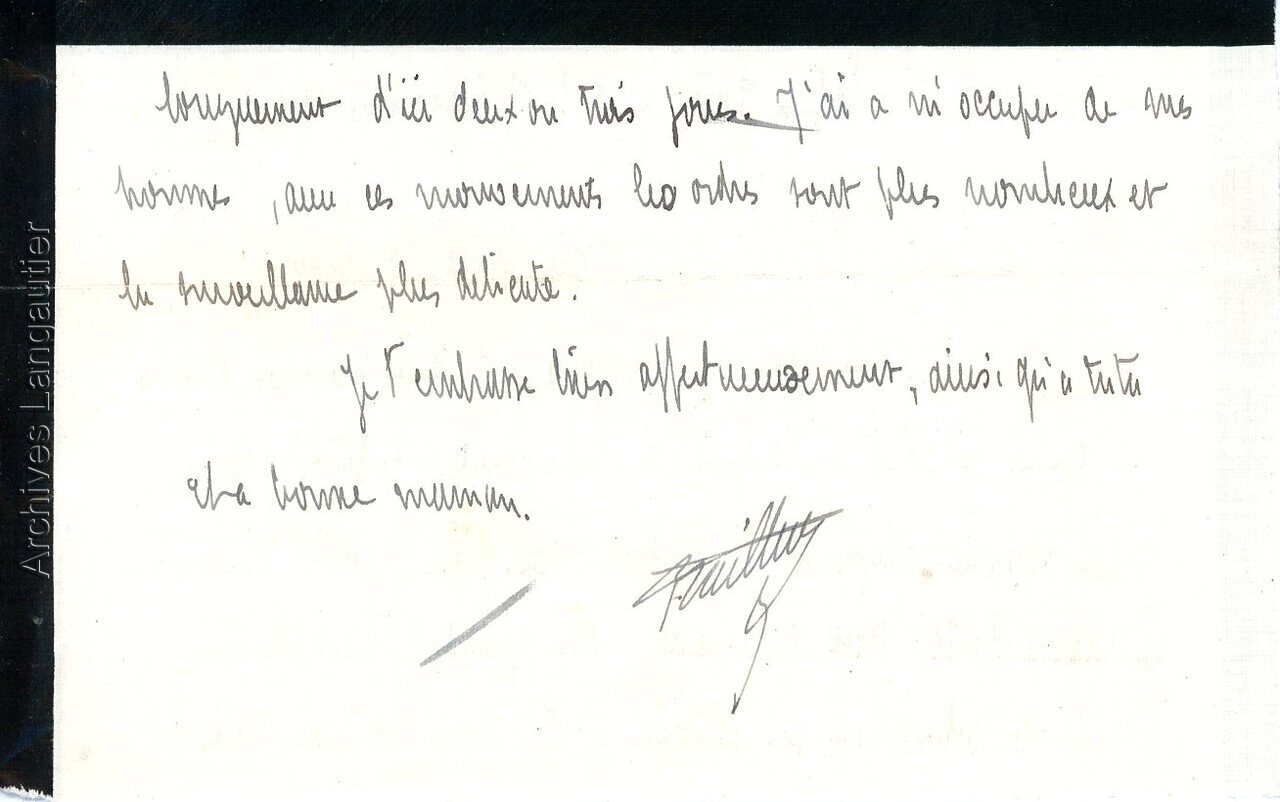 longuement d'ici deux ou trois jours. J'ai a m'occuper de mes
hommes, avec ces mouvements les ordres sont plus nombreux et
la surveillance plus delicate.
Je t'embrasse bien affectueusement, ainsi qu'a tutu
et a bonne maman.
Archives Langautier